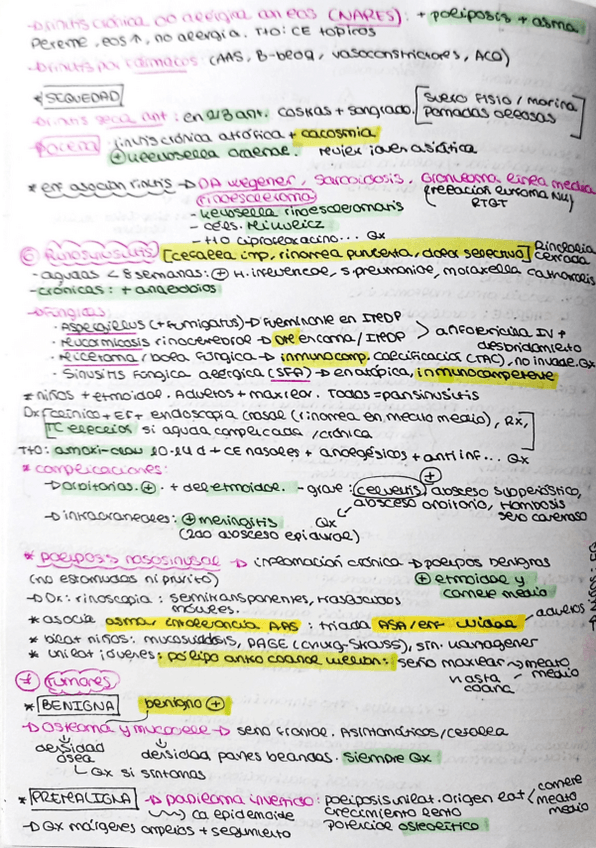 →rinitis crónica no alérgica con eos (NARES). + poliposis + asma
Perenne, eos ↑, no alergia. TTO: CE tópicos
→rinitis por fármacos (AAS, B-bloq, vasoconstrictores, ACO)
* SEQUEDAD
→rinitis seca ant: en 2/3 ant. costras + sangrado. [suero FISIO / marina
Pomadas oleosas]
→OZENA: rinitis crónica atrófica + cacosmia
⊕ Klebsiella ozaenae. Mujer joven asiática
* enf asocian rinitis → DA wegener, sarcoidosis, Granuloma línea media
rinoescleroma
RTQT
- klebsiella rinoescleromatis
- céls. Mikulicz
- TTO ciprofloxacino... Qx
⑥ Rinosinusitis [cefalea imp, rinorrea purulenta, dolor selectivo] Rinolalia cerrada
- agudas < 8 semanas: ⊕ H. influenzae, S. pneumoniae, moraxella catharralis
- crónicas: + anaerobios
→Fúngicas:
· Aspergillus (+ fumigatus) → Fulminante en INDP
· Mucormicosis rinocerebral → DM en coma / INDP > anfotericina IV + desbridamiento
· Micetoma / bola fúngica → inmunocomp. calcificación (TAC), no invade. Qx
· Sinusitis Fúngica alérgica (SFA) → en atópica, inmunocompetente
* niños + etmoidal. Adultos + maxilar. Todos = pansinusitis
Dx: clínico + EF + endoscopia nasal (rinorrea en meato medio), RX,
[TC elección si aguda complicada / crónica]
TTO: amoxi-clav 10-14 d + CE nasales + analgésicos + anti inf... Qx
* complicaciones:
→ orbitarias. ⊕. + del etmoidal. - grave: celulitis ⊕, absceso subperióstico,
absceso orbitario, trombosis seno cavernoso
Qx
→ intracraneales: ⊕ meningitis
(2do absceso epidural)
* poliposis nasosinusal → inflamación crónica → pólipos benignos
(no estornudos ni prurito) ⊕ etmoides y cornete medio
→ Dx: rinoscopia: semitransparentes, traslúcidos
móviles.
* asocia asma, intolerancia AAS: triada ASA / enf Widal → adultos
* bilat niños: mucoviscidosis, PAGE (Churg-Strauss), sm.
* unilat jóvenes: pólipo antro coanal killian: seno maxilar → meato medio
hasta coana
⑦ Tumores
* BENIGNA benigno ⊕
→ Osteoma y mucocele → seno frontal. Asintomáticos / cefalea
densidad ósea densidad partes blandas. siempre Qx
└ Qx si síntomas
* PREMALIGNA → papiloma invertido: poliposis unilat. origen lat < cornete
meato medio
ca epidermoide crecimiento lento
→ Qx márgenes amplios + seguimiento potencial osteolítico